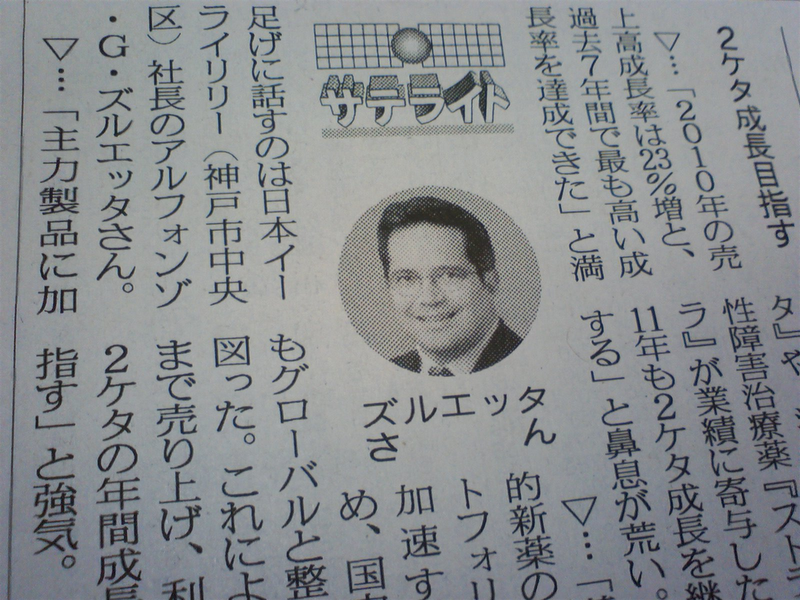 2ケタ成長目指す
▽…「2010年の売
上高成長率は23%増と、
過去7年間で最も高い成
長率を達成できた」と満
サテライト
足げに話すのは日本イー
ライリリー（神戸市中央
区）社長のアルフォンゾ
・G・ズルエッタさん。
▽…「主力製品に加
タ』や
性障害治療薬『ストラ
ラ』が業績に寄与した
11年も2ケタ成長を継
する」と鼻息が荒い。
ズルエッタ
さん
▽…「
的新薬の
トフォリ
加速す
め、国
もグローバルと整
図った。これによ
まで売り上げ、利
2ケタの年間成長
指す」と強気。